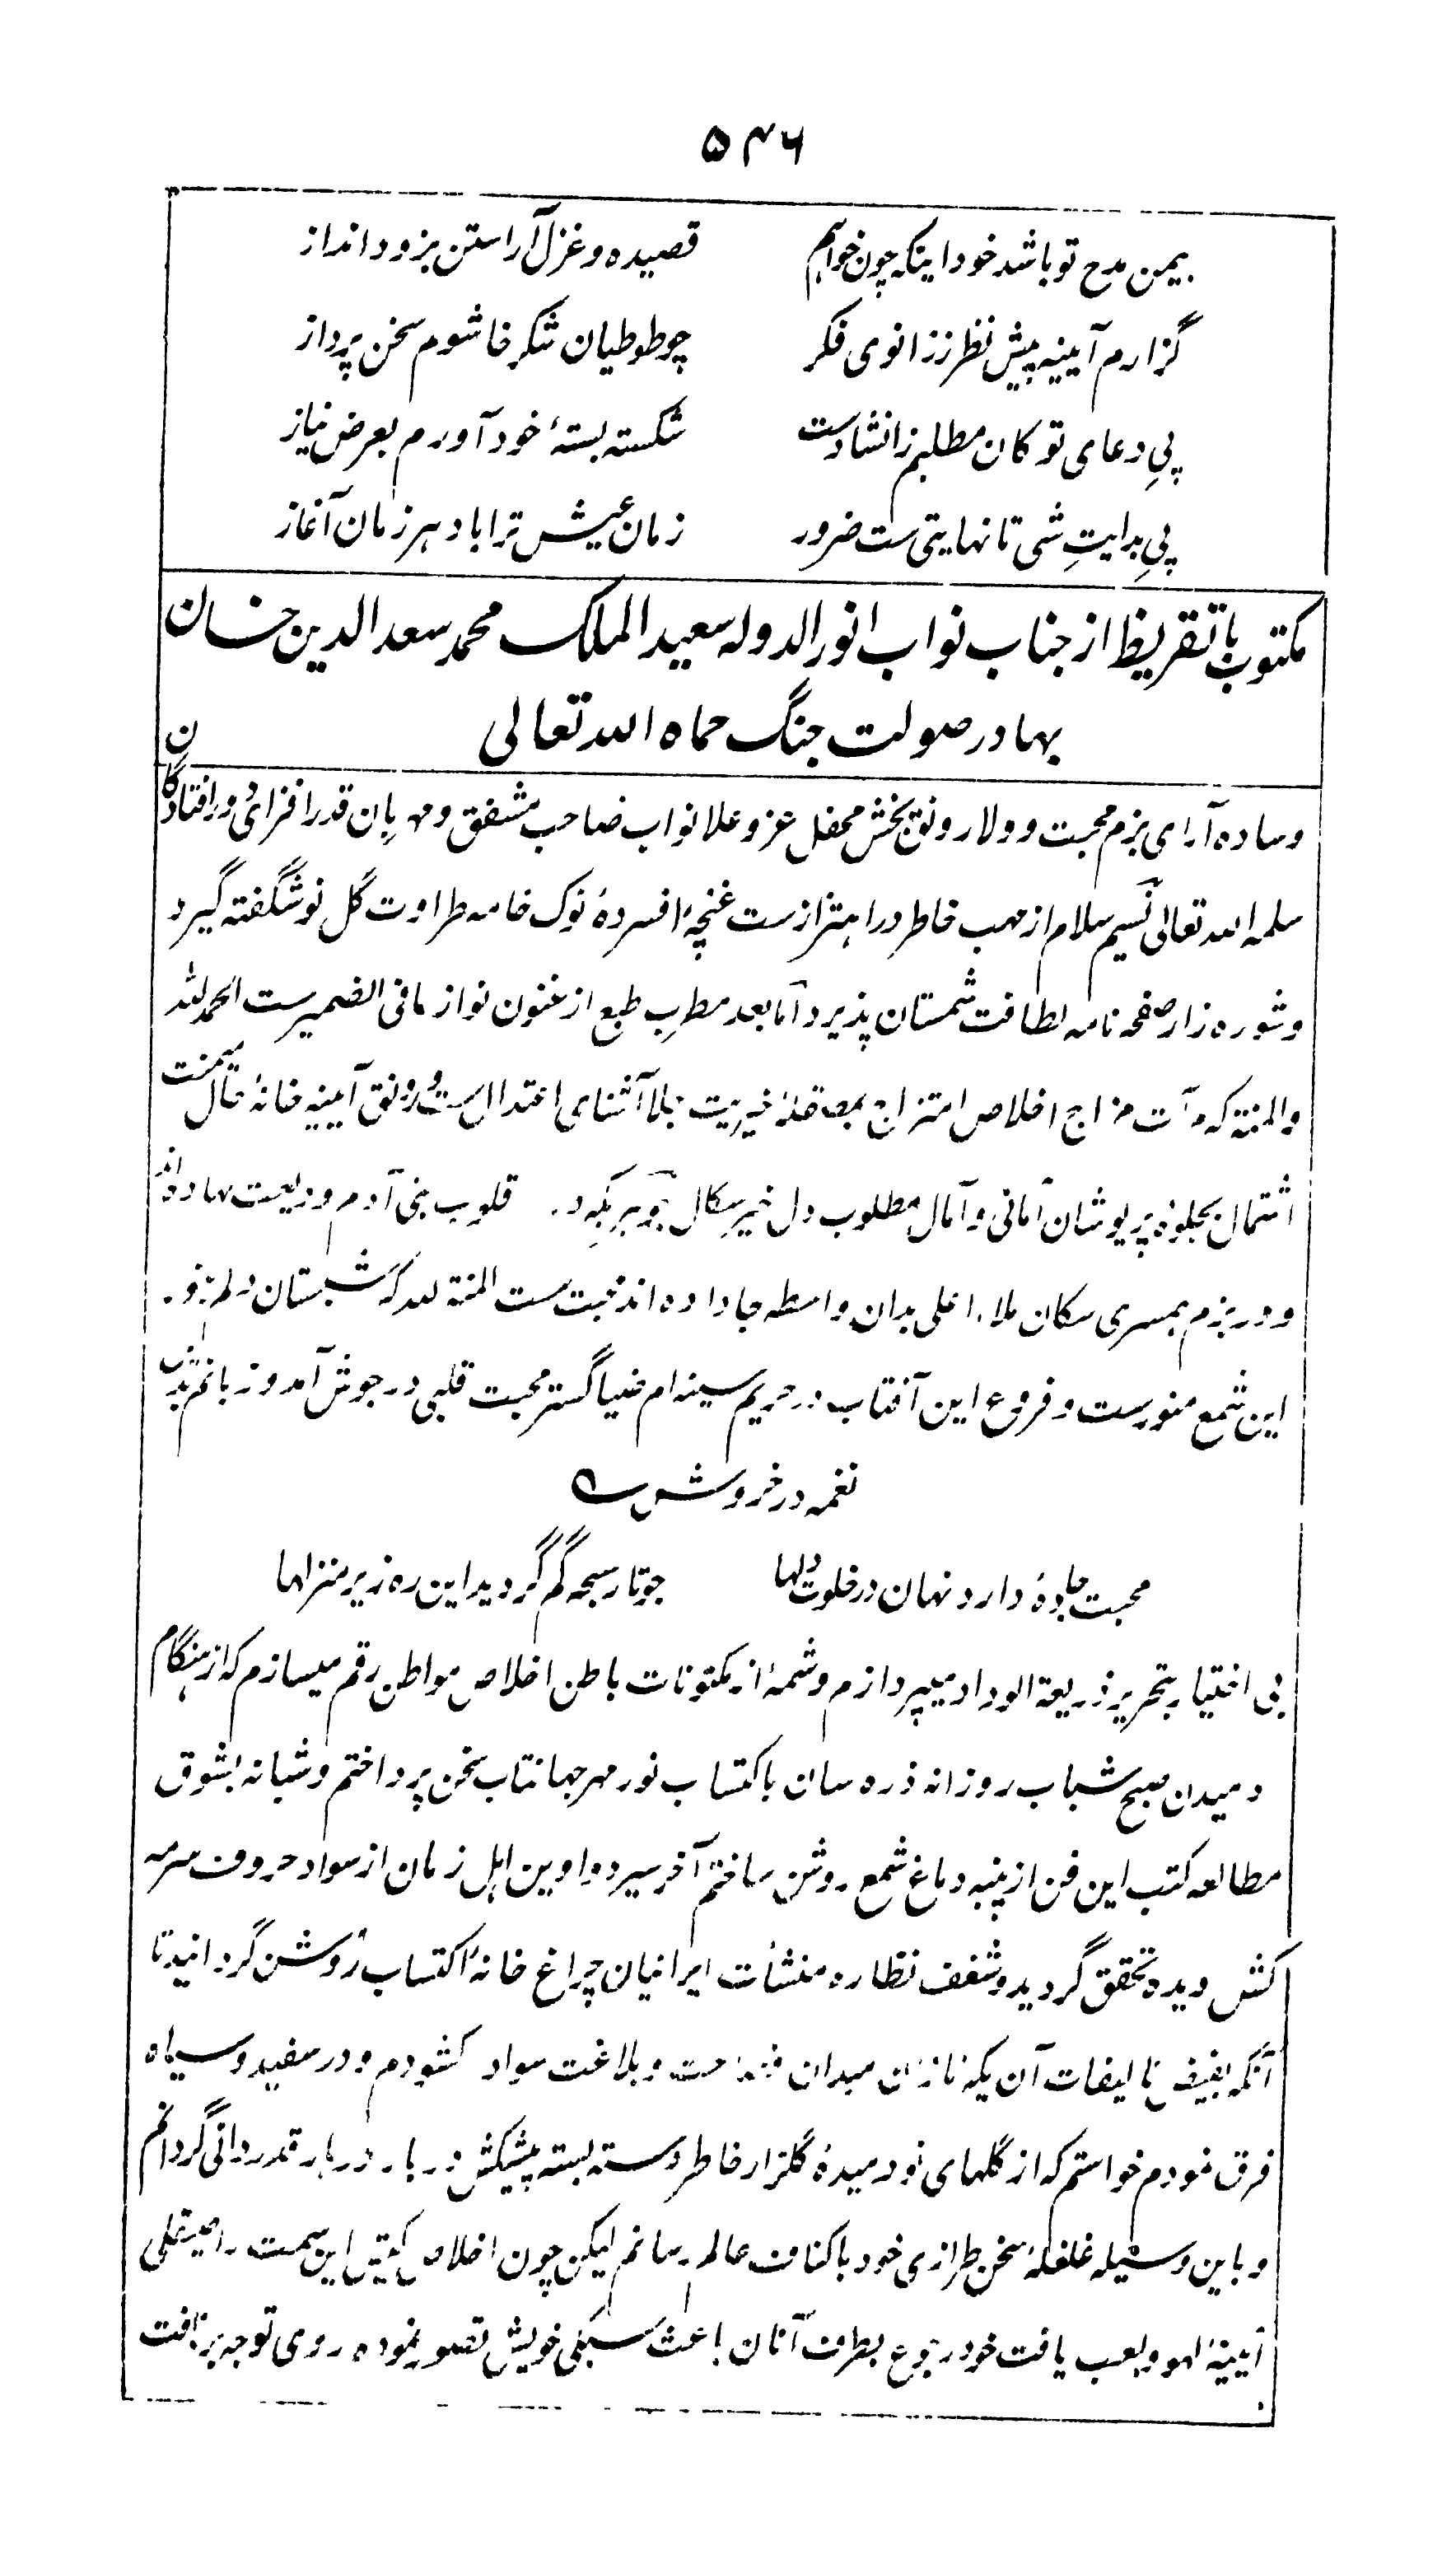 ۵۴۶
بیمن مدح تو باشد خود اینکه چون خواهم قصیده و غزل آراستن بزود انداز
گزارم آیینه پیش نظر ز زانوی فکر چو طوطیان شکر خا شوم سخن پرداز
پیِ دعای تو کان مطلبم ز انشادست شکسته بستهٔ خود آورم بعرض نیاز
پیِ بدایتِ شی تا نهایتی ست ضرور زمان عیش ترا باد هر زمان آغاز
مکتوب با تقریظ از جناب نواب انور الدوله سعید الملک محمد سعد الدین خان
بهادر صولت جنگ حماه الله تعالی
وساده آرای بزم محبت و ولا رونق بخش محفل عز و علا نواب صاحب مشفق و مهربان قدر افزای دور افتادگان
سلمه الله تعالی نسیم سلام از مهب خاطر در اهتزازست غنچهٔ افسردهٔ نوک خامه طراوت گل نو شگفته گیرد
و شوره زار صفحه نامه لطافت شمستان پذیرد اما بعد مطرب طبع ارغنون نواز مافی الضمیرست الحمد لله
والمنة که مرآت مزاج اخلاص امتزاج بمصقلهٔ خیریت جلا آشنای اعتدال ست و رونق آیینه خانهٔ مآل میمنت
اشتمال بجلوهٔ پریوشان امانی و آمال مطلوب دل خیر سگال قلوب بنی آدم ودیعت نهاده اند
و در بزم همسری سکان ملاء اعلی بدان واسطه جا داده اند محبت ست المنة لله که شبستان دلم
این شمع منورست و فروغ این آفتاب در حریم سینه ام ضیا گستر محبت قلبی در جوش آمد و زبانم بدین
نغمه در خروش ؎
محبت جادهٔ دارد نهان در خلوت دلها چو تار سبحه گم گردید این ره زیر منزلها
بی اختیار بتحریر ذریعة الوداد میپردازم و شمهٔ از مکتونات باطن اخلاص مواطن رقم میسازم که از هنگام
دمیدن صبح شباب روزانه ذره سان باکتساب نور مهر جهانتاب سخن پرداختم و شبانه بشوق
مطالعه کتب این فن از پنبه دماغ شمع روشن ساختم آخر سیر دواوین اهل زمان از سواد حروف سرمه
کش دیده تحقق گردید و شغف نظاره منشأت ایرانیان چراغ خانهٔ اکتساب روشن گردانید تا
آنکه بفیض تالیفات آن یکه تازان میدان فصاحت و بلاغت سواد کشودم و در سفید و سیاه
فرق نمودم خواستم که از گلهای نو دمیدهٔ گلزار خاطر دسته بسته پیشکش دربار دربار قدردانی گردانم
و باین وسیله غلغلهٔ سخن طرازی خود باکناف عالم رسانم لیکن چون اخلاص کیش این سمت را صیقلی
آیینهٔ لهو و لعب یافت خود رجوع بطرف آنان باعث سبکی خویش تصور نموده روی توجه بر تافت